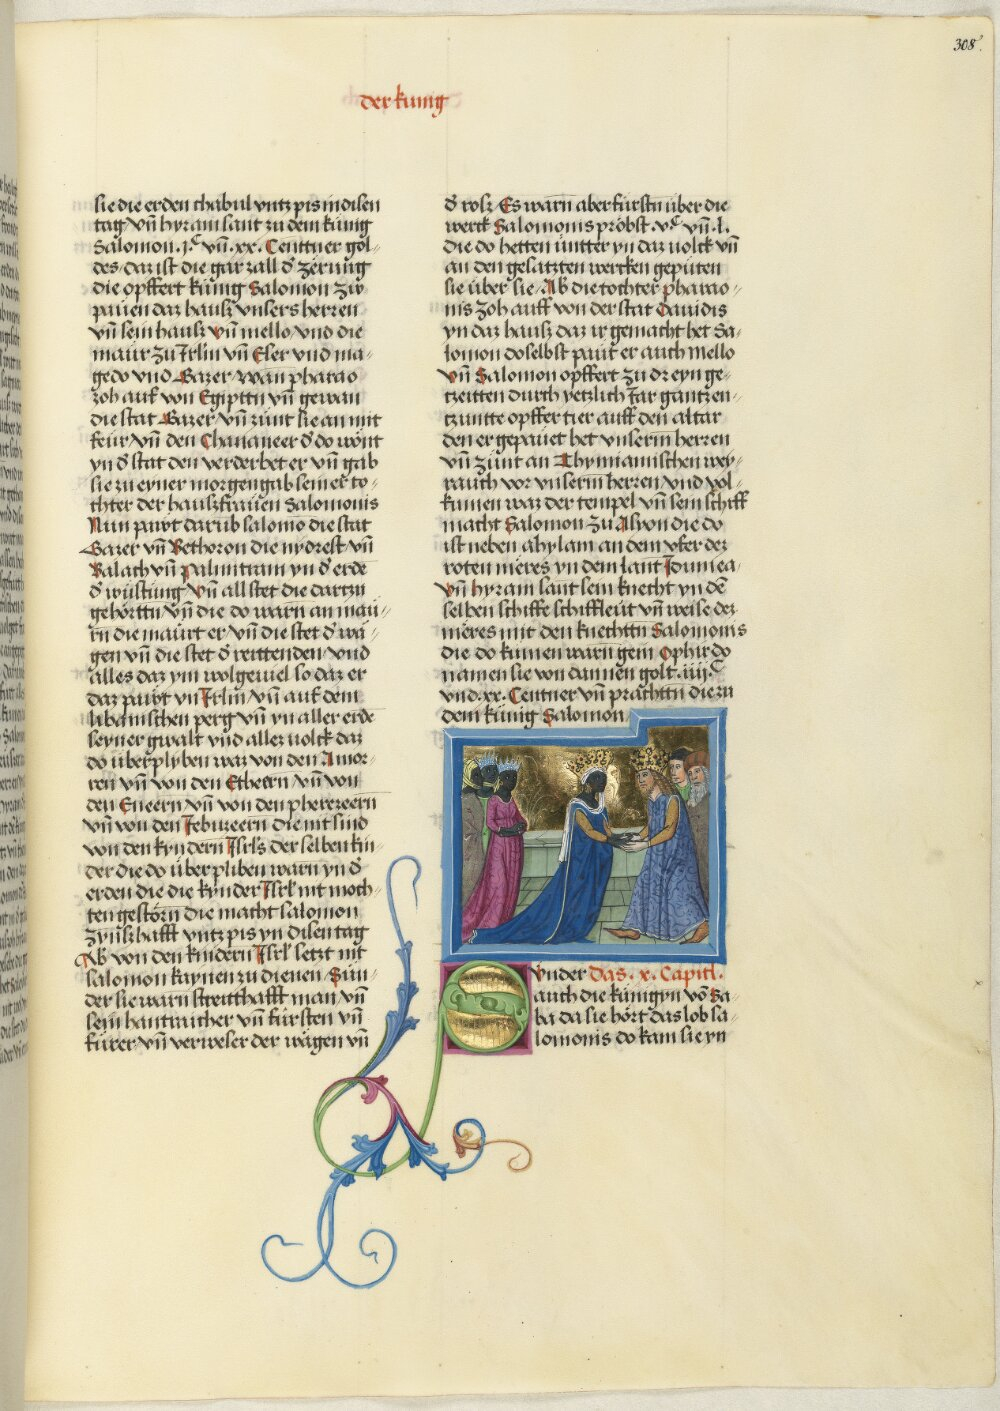 308
der kunig
sie die erden chabul vntz pis in disen
tag vn̄ hyram sant zu dem künig
Salomon .1.c vn̄ .xx. Centtner gol
des daz ist die gar zall d' zerung
die opffert künig Salomon zw
pauen daz hausz vnsers herren
vn̄ sein hausz vn̄ mello vnd die
maur zu Jrlm vn̄ Eser vnd ma-
gedo vnd Gazer wan pharao
zoh auf von Egiptn vn̄ gewan
die stat Gazer vn̄ zünt sie an mit
feur vn̄ den Chananeer d' do wont
yn d' stat den verderbet er vn̄ gab
sie zu eyner morgengab seiner to-
chter der hauszfrauen Salomonis
Nun pawt darüb salomo die stat
Gazer vn̄ Bethoron die nydrest vn̄
Balach vn̄ Palmiram yn d' erde
d' wüstung Vn̄ all stet die dartzu
gehörttn vn̄ die do warn an mau-
rn die maurt er vn̄ die stet d' wä-
gen vn̄ die stet d' reittenden vnd
alles daz ym wolgeuiel so daz er
daz pawt yn Jrlm vn̄ auf dem
libanischen perg vn̄ yn aller erde
seyner gwalt vnd alles uolck daz
do überplyben waz von den Amor-
ren vn̄ von den Etheern vn̄ von
den Eueern vn̄ von den pherezeern
vn̄ von den Jebuzeern die nit sind
von den kyndern Jsrls der selben kin-
der die do überpliben warn yn d'
erden die die kynder Jsrl nit moch-
ten gestörn die macht salomon
zynszhafft vntz pis yn disen tag
Ab von den kindern Jsrl setzt nit
salomon kaynen zu dienen Sun-
der sie warn streitthafft man vn̄
sein hantraicher vn̄ fürsten vn̄
fürer vn̄ verweser der wägen vn̄
d' rosz Es warn aber fürstn über die
werck Salomonis pröbst .v.c vn̄ .l.
die do hetten untter yn daz uolck vn̄
an den gesatzten wercken geputen
sie über sie Ab die tochter pharao-
nis zoh auff von der stat Dauidis
yn daz hausz daz ir gemacht het Sa-
lomon doselbst paut er auch mello
vn̄ Salomon opffert zu dreyn ge-
tzeitten durch yetzlich Jar gantz en-
tzuntte opffer tier auff den altar
den er gepauet het vnserm herren
vn̄ zünt an Thymiamischen wey-
rauch vor vnserm herren vnd vol-
kumen waz der tempel vn̄ sein schiff
macht Salomon zu Asyon die do
ist neben ahylam an dem vfer des
roten meres yn dem lant Jdumea
Vn̄ hyram sant sein knecht yn dē
selben schiffe schiffleut vn̄ weise des
meres mit den knechttn Salomonis
die do kumen warn gein Ophir do
namen sie von dannen golt .iiij.c
vnd .xx. Centner vn̄ prachttn die zu
dem künig Salomon
Vnder Das .x. Capitl.
auch die künigyn vō Sa-
ba da sie hört das lob sa-
lomonis do kam sie yn